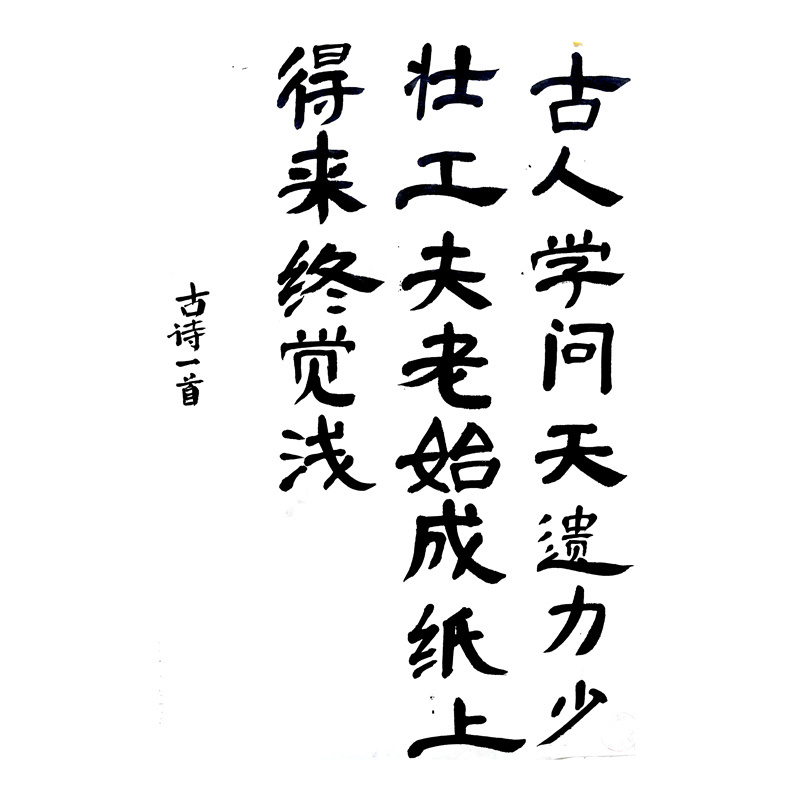 古人学问天遗力少
壮工夫老始成纸上
得来终觉浅
古诗一首